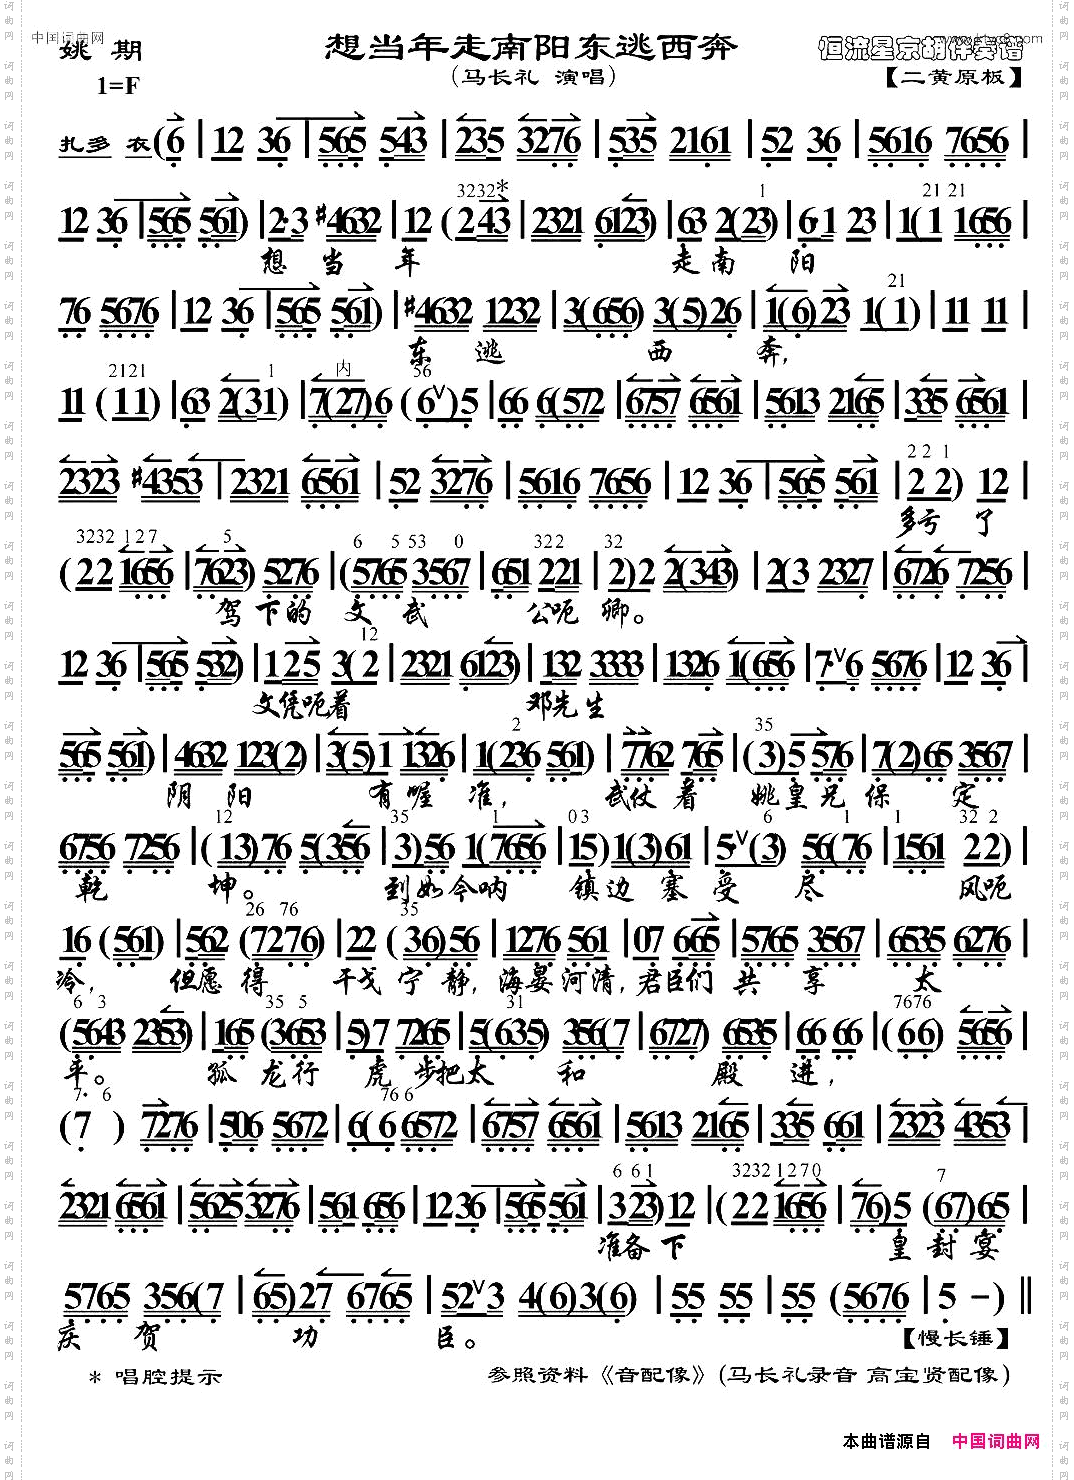 中国词曲网
www.ktvc8.com
姚 期
想当年走南阳东逃西奔
恒流星京胡伴奏谱
1=F
(马长礼 演唱)
【二黄原板】
扎多 衣(6 | 12 36 | 565 543 | 235 3276 | 535 2161 | 52 36 | 5616 7656 |
3232* 1 21 21
12 36 | 565 561) | 2·3 #4632 | 12 (243 | 2321 6123) | 63 2(23) | 6·1 23 | 1(1 1656 |
想 当 年 走 南 阳
21
76 5676 | 12 36 | 565 561) | #4632 1232 | 3(656) 3(5)26 | 1(6)23 1(1) | 11 11 |
东 逃 西 奔,
2121 1 内 56
11 (11) | 63 2(31) | 7(27)6 (6∨)5 | 66 6(572 | 6757 6561 | 5613 2165 | 335 6561 |
2 2 1
2323 #4353 | 2321 6561 | 52 3276 | 5616 7656 | 12 36 | 565 561 | 22) 12 |
多亏 了
3232 127 5 6 5 53 0 322 32
(22 1656 | 7623) 5276 | (5765 3567 | 651 221 | 2)2 2(343) | 2(3 2327 | 6726 7256 |
驾 下 的 文 武 公呃 卿。
12
12 36 | 565 532) | 125 3(2 | 2321 6123) | 132 3333 | 1326 1(656 | 7·∨6 5676 | 12 36 |
文凭呃着 邓先生
2 35
565 561) | 4632 123(2) | 3(5)1 1326 | 1(236 561) | 7762 765 | (3)5 576 | 7(2)65 3567 |
阴 阳 有喔 准, 武仗 着 姚皇兄 保 定
12 35 1 03 6 1 1 32 2
6756 7256 | (13)76 5(356 | 3)56 1(7656 | 15)1(3)61 | 5∨(3) 56(76 | 1561 22) |
乾 坤。 到如今呐 镇 边 塞 受 尽 风呃
26 76 35
16 (561) | 562 (7276) | 22 (36)56 | 1276 561 | 07 665 | 5765 3567 | 6535 6276 |
冷, 但愿 得 干戈 宁 静, 海晏河清, 君臣们 共 享 太
6 3 35 5 31 7676
(5643 2353) | 165 (3653 | 5)7 7265 | 5(635) 356(7 | 6727) 6535 | 66 66 | (66) 5656 |
平。 孤 龙 行 虎 步把太 和 殿 进,
7· 6 76 6
(7 ) 7276 | 506 5672 | 6(6 6572 | 6757 6561 | 5613 2165 | 335 661 | 2323 4353 |
6 61 3232 1270 7
2321 6561 | 5625 3276 | 5616 7656 | 12 36 | 565 561 | 323)12 | (22 1656 | 76)5 (67)65 |
准备 下 皇 封 宴
5765 356(7 | 65)27 6765 | 52∨3 4(6)3(6) | 55 55 | 55 (5676 | 5 -) ‖
庆 贺 功 臣。 【慢长锤】
* 唱腔提示 参照资料《音配像》(马长礼录音 高宝贤配像)
本曲谱源自 中国词曲网